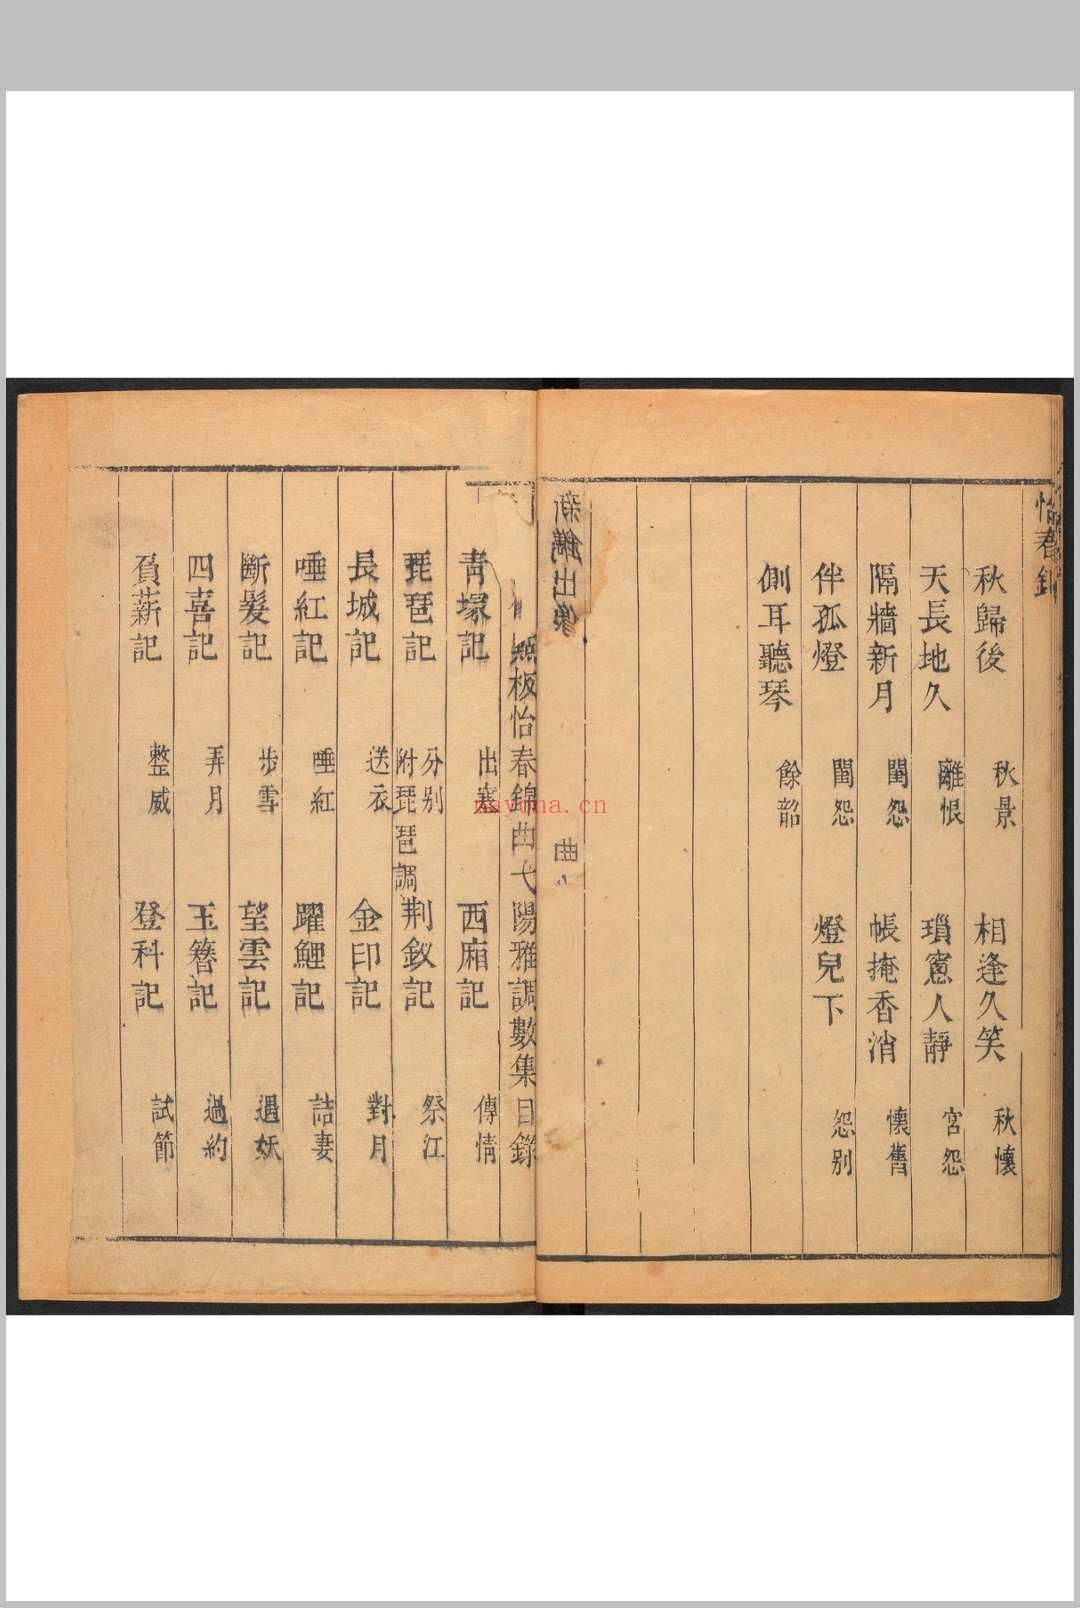 怡春錦
秋歸後 秋景 相逢久笑 秋懷
天長地久 離恨 瑣窻人靜 宮怨
隔牆新月 閨怨 帳掩香消 懷舊
伴孤燈 閨怨 燈兒下 怨别
側耳聽琴 餘韶
點板怡春錦曲弋陽雅調數集目錄
青塚記 出塞 西廂記 傳情
琵琶記 分别 附琵琶調 荆釵記 祭江
長城記 送衣 金印記 對月
唾紅記 唾紅 躍鯉記 詰妻
斷髮記 步雪 望雲記 遇妖
四喜記 弄月 玉簪記 過約
負薪記 整威 登科記 試節
nayona.cn